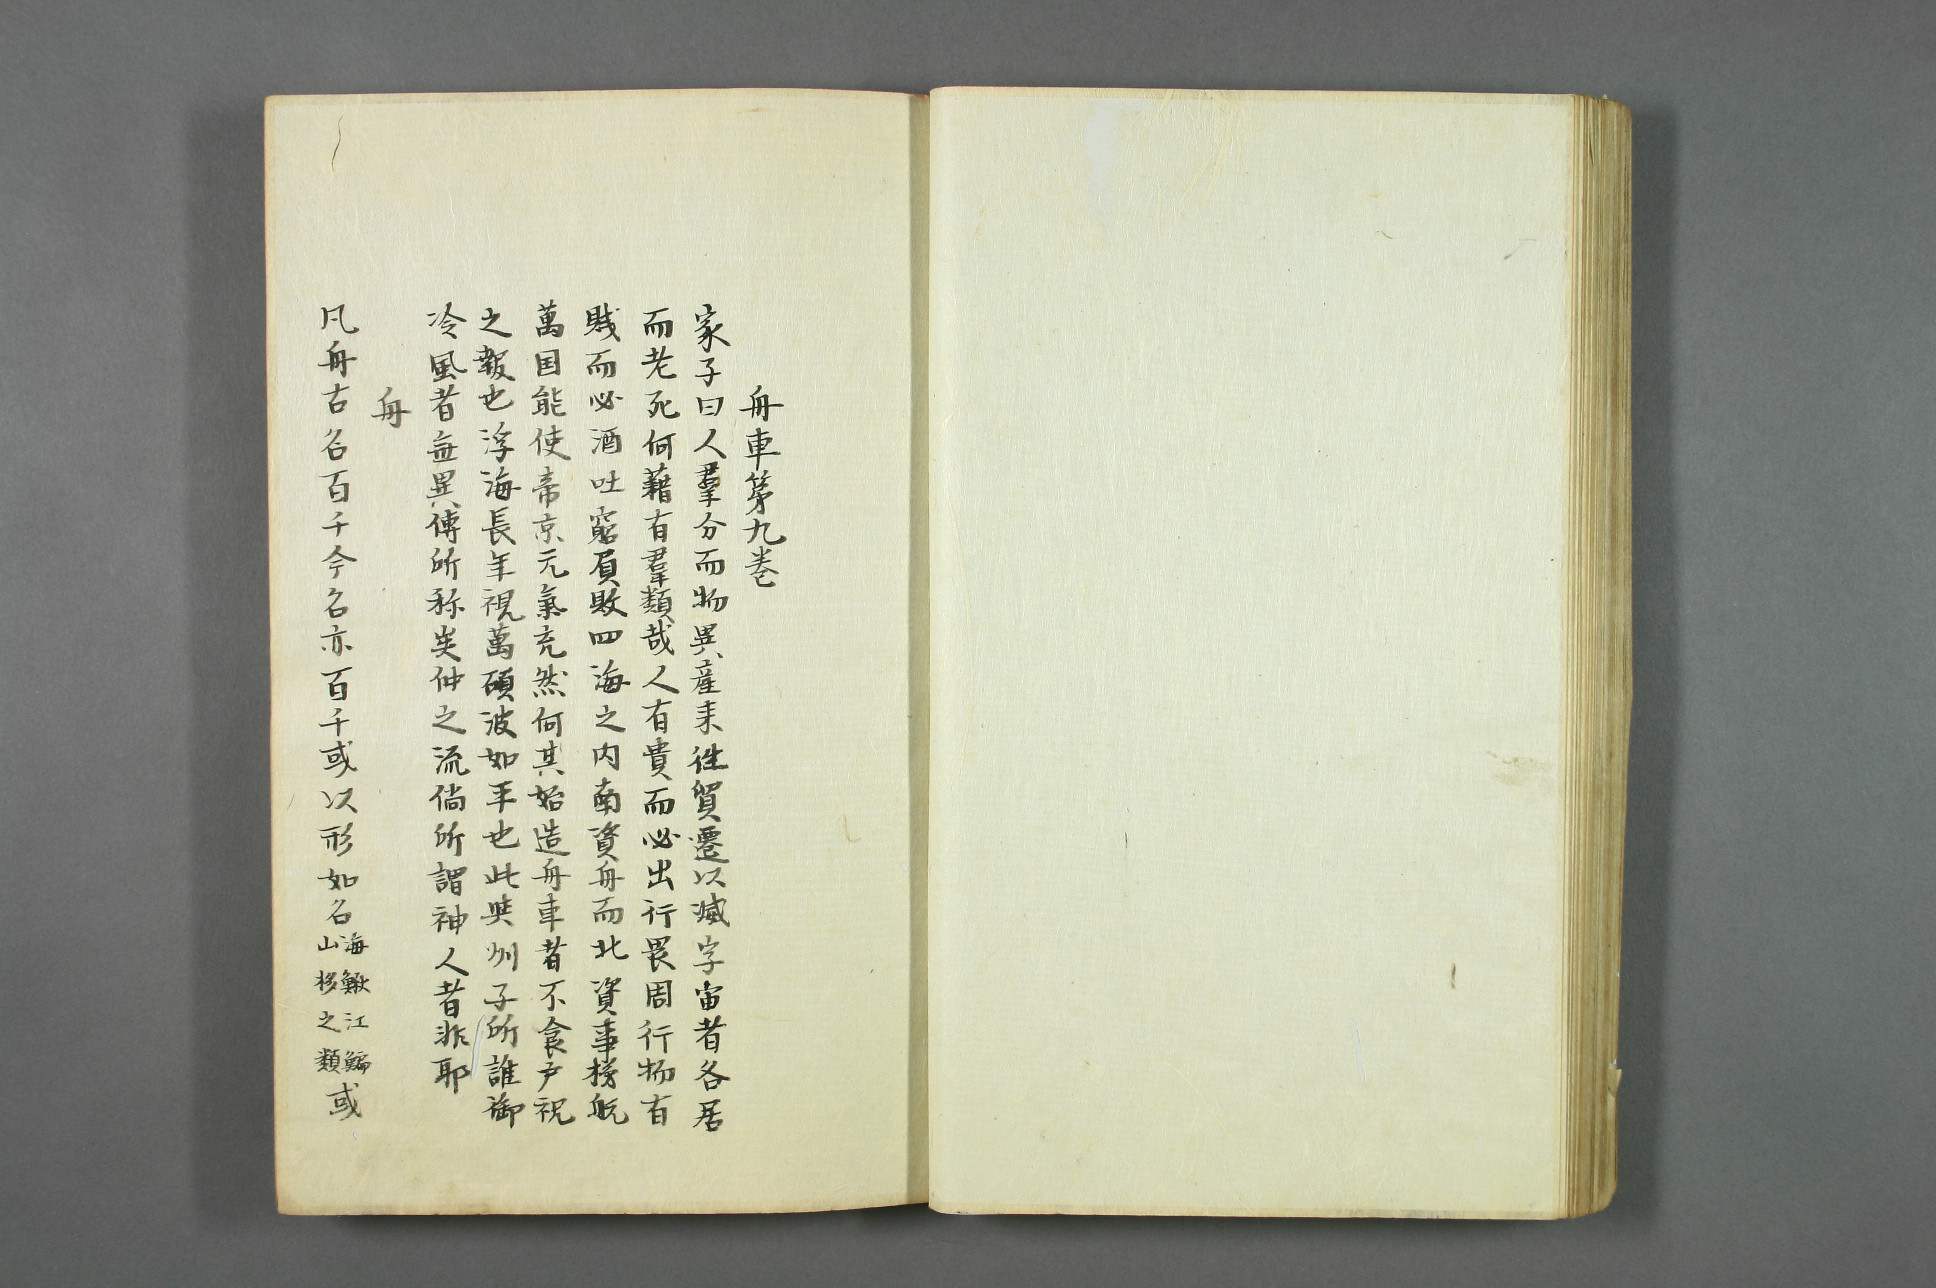 舟車第九卷
家子曰人羣分而物異産来徃貿遷以滅字宙者各居
而老死何藉有羣類哉人有貴而必出行畏周行物有
賎而必酒吐窮負敗四海之内南資舟而北資車梯航
萬国能使帝京元氣充然何其始造舟車者不食尸祝
之報也浮海長年視萬頃波如平也此與列子所誰御
冷風者無異傳所称奚仲之流倘所謂神人者非耶
舟
凡舟古名百千今名亦百千或以形如名海鰍江鯿山梭之類或